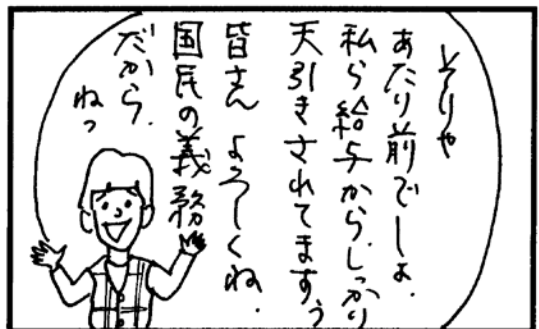 そりゃ
あたり前でしょ.
私ら給与から.しっかり
天引きされてますぅ
皆さん よろしくね.
国民の義務
だから.
ねっ